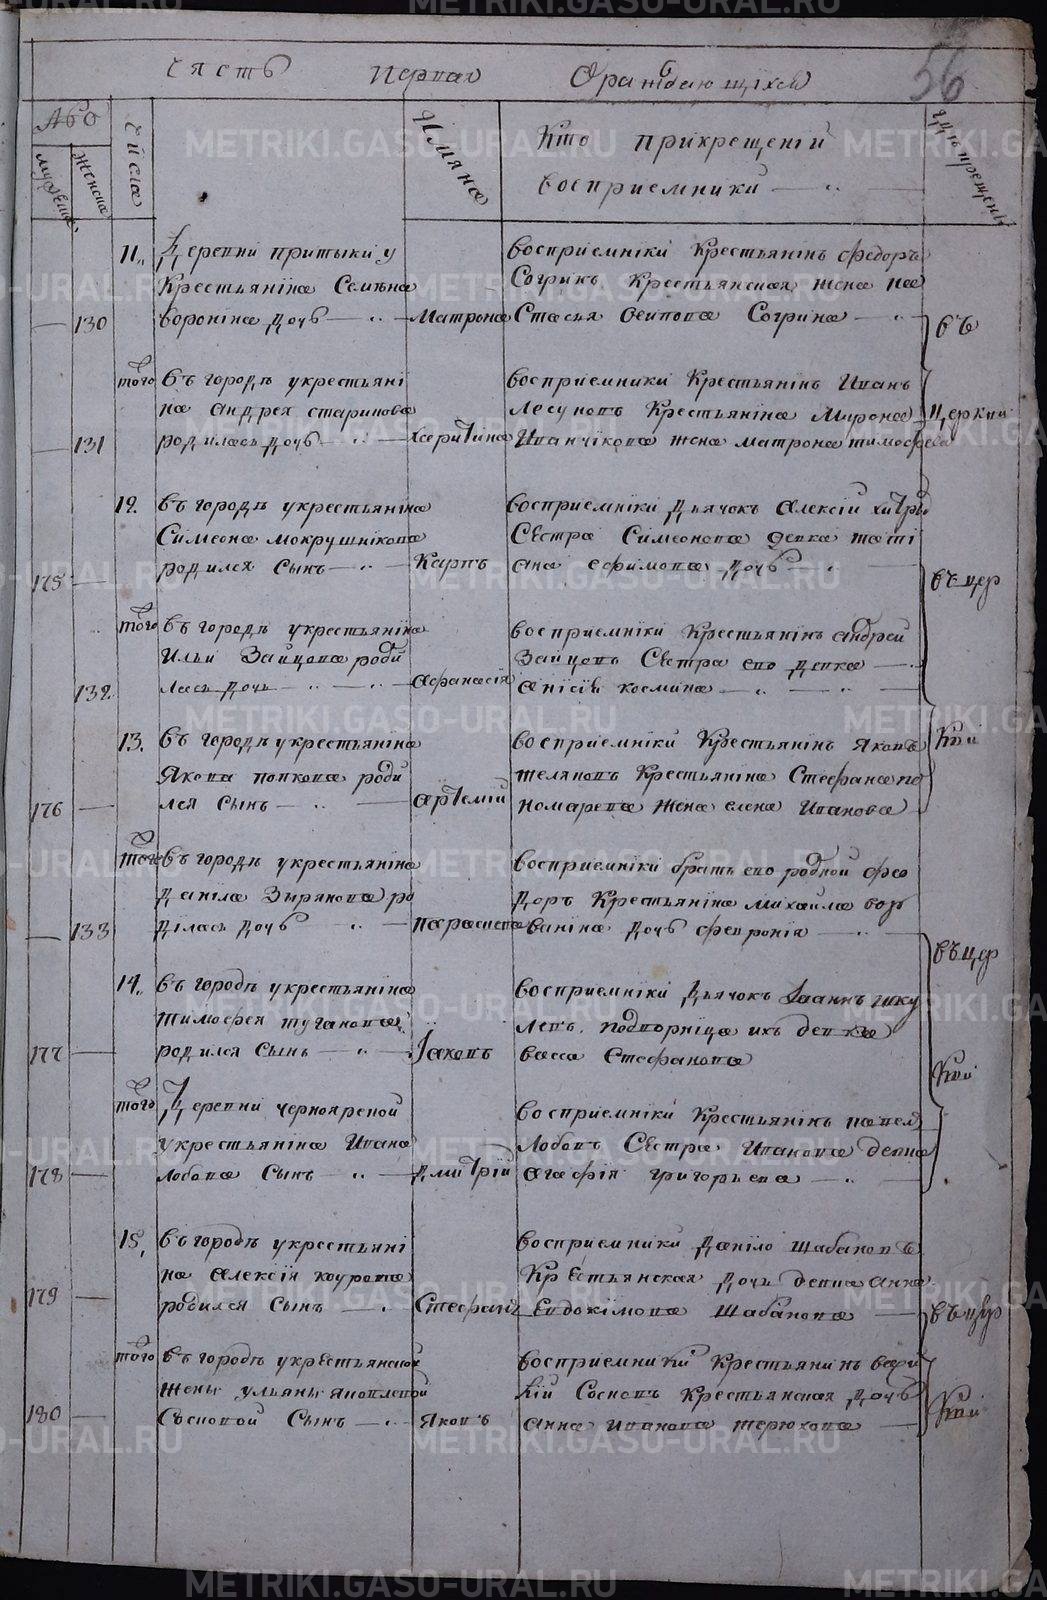 Часть Первая О раждающихся
56
Число
мужеска
женска
Числа
Имяна
Кто прикрещенiй
восприемники
гдѣ крещены
11. Деревни притыки у
Крестьянина Семѣна
130 воронина дочь Матрона
восприемнiки Крестьянинъ Федоръ
Согринъ Крестьянская жена на
стасья осипова Согрина
въ
того въ городѣ укрестьянi
на андрея старикова
131 родилась дочь харитiна
восприемники Крестьянинъ Иванъ
Лесуновъ Крестьянина Мирона
Иванчiкова жена матрона тимофеева
церкви
12. въ городѣ укрестьянiна
Симеона мокрушнiкова
175 родился сынъ Карпъ
восприемнiки дьячокъ Алексiй
сестра Симеонова девка татi
ана ефимова дочь
въ цер
того въ городѣ укрестьянiна
Ильи Зайцова роди
132 лась дочь афанасiя
восприемнiки Крестьянiнъ андрей
Зайцовъ сестра ево девка
анiсiя космина
13. въ городѣ укрестьянiна
Якова попкова роди
176 лся сынъ артемiй
восприемнiки Крестьянiнъ Яковъ
теляковъ Крестьянiна Стефана по
номарева жена елена Иванова
кви
того въ городѣ укрестьянiна
данiла Зырянова ро
133 дiлась дочь параскева
восприемнiки братъ ево родной фео
доръ Крестьянiна михайла
ванiна дочь февронiя
въ цер
14. въ городѣ укрестьянiна
тимофея туганова
177 родился сынъ Iаковъ
восприемнiки дьячокъ Iоаннъ
левъ. подпорнiца ихъ девка
васса Стефанова
кви
того Деревни черноярской
укрестьянiна Ивана
178 Лобова сынъ дмитрiй
восприемнiки Крестьянiнъ павелъ
Лобовъ сестра Иванова девка
агафiя григорьева
15. въ городѣ укрестьянi
на алексiя коурова
179 родился сынъ Стефанъ
восприемники данiло шабановъ
Крестьянская дочь девка анна
Евдокiмова шабанова
въ цер
того въ городѣ укрестьянской
жены ульяны яковлевой
180 Сосновой сынъ Яковъ
восприемникiй Крестьянинъ
кiй Сосновъ Крестьянская дочь
анна Иванова терюхова
кви
METRIKI.GASO-URAL.RU